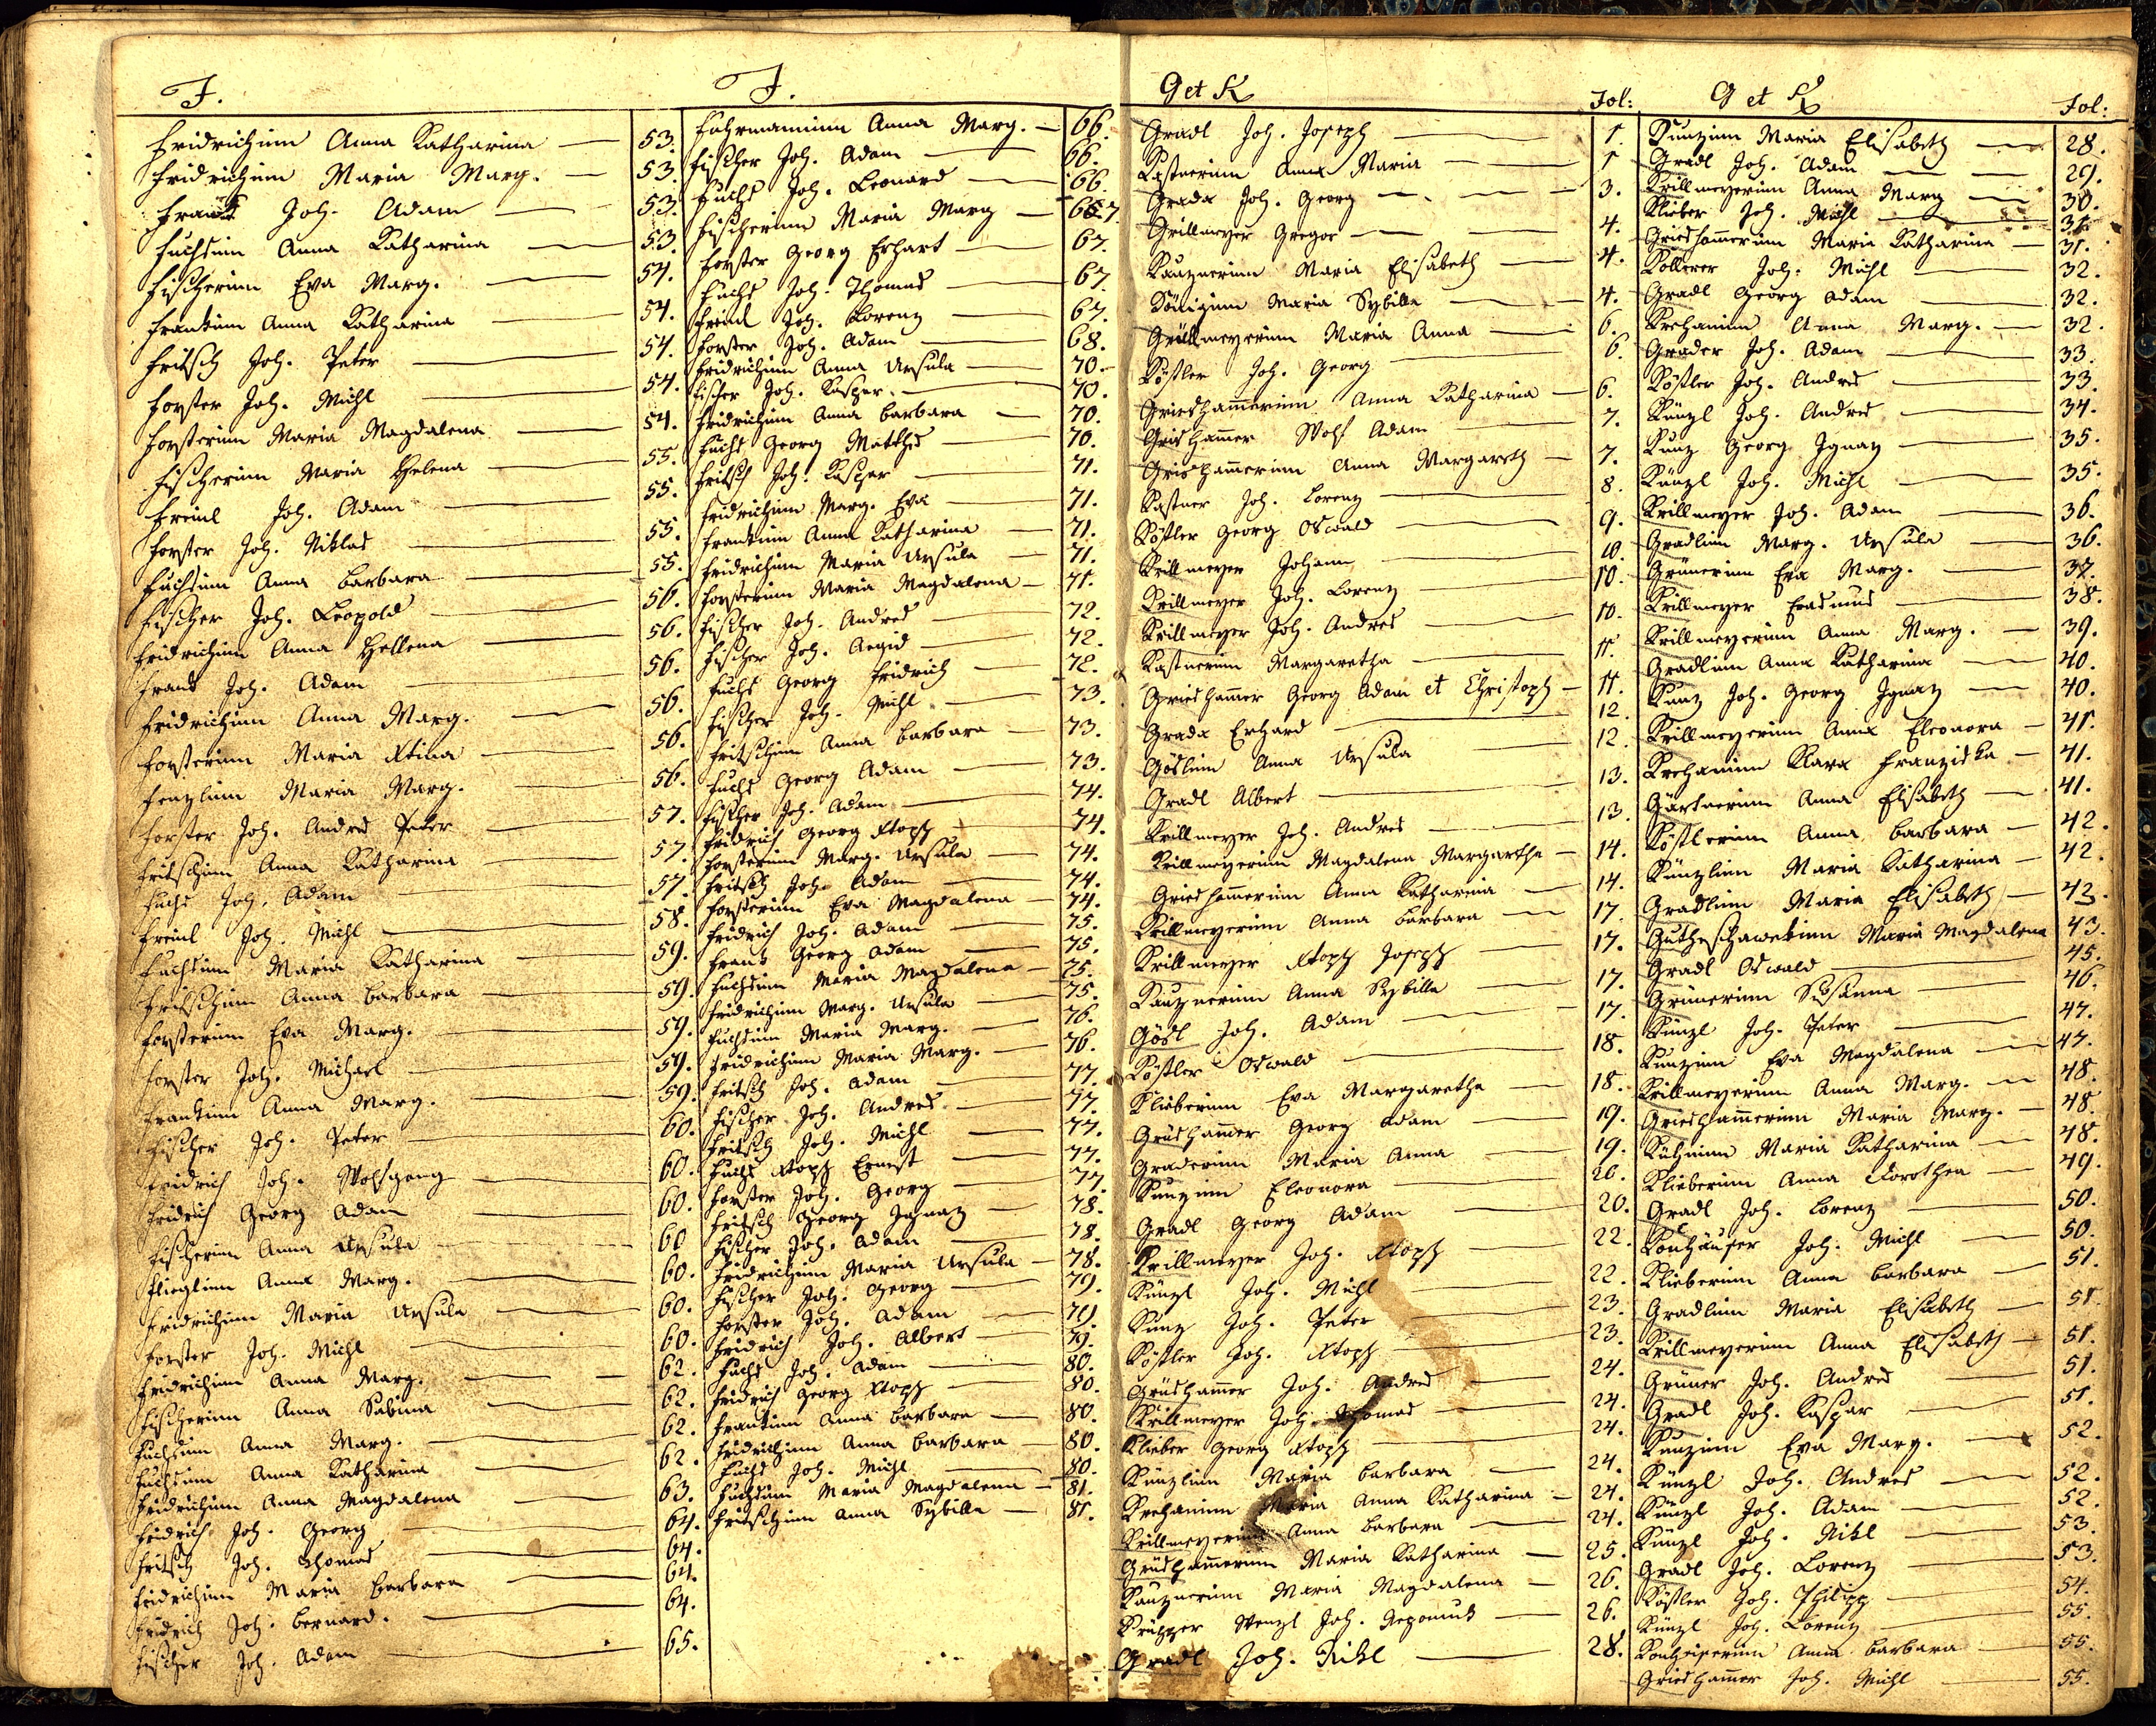 F.
Fridrichinn Anna Katharina — 53.
Fridrichinn Maria Marg. — 53.
Franck Joh. Adam — 53.
Fuchsinn Anna Katharina — 53.
Fischerinn Eva Marg. — 54.
Frankinn Anna Katharina — 54.
Fritsch Joh. Peter — 54.
Forster Joh. Michl — 54.
Forsterinn Maria Magdalena — 54.
Fischerinn Maria Helena — 55.
Freinl Joh. Adam — 55.
Forster Joh. Niklas — 55.
Fuchsinn Anna Barbara — 55.
Fischer Joh. Leopold — 56.
Fridrichinn Anna Hellena — 56.
Frank Joh. Adam — 56.
Fridrichinn Anna Marg. — 56.
Forsterinn Maria Xtina — 56.
Fenzlinn Maria Marg. — 56.
Forster Joh. Andre Peter — 57.
Fritschinn Anna Katharina — 57.
Fuchs Joh. Adam — 57.
Freinl Joh. Michl — 58.
Fuchsinn Maria Katharina — 59.
Fritschinn Anna Barbara — 59.
Forsterinn Eva Marg. — 59.
Forster Joh. Michael — 59.
Frankinn Anna Marg. — 59.
Fischer Joh. Peter — 60.
Fridrich Joh. Wolfgang — 60.
Fridrich Georg Adam — 60.
Fischerinn Anna Ursula — 60
Flieglinn Anna Marg. — 60.
Fridrichinn Maria Ursula — 60.
Forster Joh. Michl — 60.
Fridrichinn Anna Marg. — 62.
Fischerinn Anna Sabina — 62.
Fuchsinn Anna Marg. — 62.
Fuchsinn Anna Katharina — 62.
Fridrichinn Anna Magdalena — 63.
Fridrich Joh. Georg — 64.
Fritsch Joh. Thomas — 64.
Fridrichinn Maria Barbara — 64.
Fridrich Joh. Bernard. — 64.
Fischer Joh. Adam — 65.
F.
Fuhrmaninn Anna Marg. — 66.
Fischer Joh. Adam — 66.
Fuchs Joh. Leonard — 66.
Fischerinn Maria Marg — 67
Forster Georg Erhart — 67.
Fuchs Joh. Thomas — 67.
Freinl Joh. Lorenz — 67.
Forster Joh. Adam — 68.
Fridrichinn Anna Ursula — 70.
Fischer Joh. Kasper. — 70.
Fridrichinn Anna Barbara — 70.
Fuchs Georg Matths — 70.
Fritsch Joh. Kasper — 71.
Fridrichinn Marg. Eva — 71.
Frankinn Anna Katharina — 71.
Fridrichinn Maria Ursula — 71.
Forsterinn Maria Magdalena — 71.
Fischer Joh. Andres — 72.
Fischer Joh. Aegid — 72.
Fuchs Georg Fridrich — 72.
Fischer Joh. Michl — 73.
Fritschinn Anna Barbara — 73.
Fuchs Georg Adam — 73.
Fischer Joh. Adam — 74.
Fridrich Georg Xtoph — 74.
Forsterinn Marg. Ursula — 74.
Fritsch Joh. Adam — 74.
Forsterinn Eva Magdalena — 74.
Fridrich Joh. Adam — 75.
Frank Georg Adam — 75.
Fuchsinn Maria Magdalena — 75.
Fridrichinn Marg. Ursula — 75.
Fuchsinn Maria Marg. — 76.
Fridrichinn Maria Marg. — 76.
Fritsch Joh. Adam — 77.
Fischer Joh. Andres. — 77.
Fritsch Joh. Michl — 77.
Fuchs Xtoph Ernest — 77.
Forster Joh. Georg — 77.
Fritsch Georg Ignaz — 78.
Fischer Joh. Adam — 78.
Fridrichinn Maria Ursula — 78.
Fischer Joh. Georg — 79.
Forster Joh. Adam — 79.
Fridrich Joh. Albert — 79.
Fuchs Joh. Adam — 80.
Fridrich Georg Xtoph — 80.
Frankinn Anna Barbara — 80.
Fridrichinn Anna Barbara — 80.
Fuchs Joh. Michl — 80.
Fuchsinn Maria Magdalena — 81.
Fritschinn Anna Sybilla — 81.
G et K Fol:
Gradl Joh. Joseph — 1.
Kastnerinn Anna Maria — 1
Grada Joh. Georg — 3.
Grillmeyer Gregor — 4.
Kauznerinn Maria Elisabeth — 4.
Königinn Maria Sybilla — 4.
Grüllmeyerinn Maria Anna — 6.
Köstler Joh. Georg — 6.
Grieshamerinn Anna Katharina — 6.
Grishamer Wolf Adam — 7.
Grishamerinn Anna Margareth — 7.
Kastner Joh. Lorenz — 8.
Köstler Georg Oswald — 9.
Krillmeyer Johann — 10.
Krillmeyer Joh. Lorenz — 10.
Krillmeyer Joh. Andres — 10.
Kastnerinn Margaretha — 11.
Grieshamer Georg Adam et Christoph — 11.
Grada Erhard — 12.
Göslinn Anna Ursula — 12.
Gradl Albert — 13.
Krillmeyer Joh. Andres — 13.
Krillmeyerinn Magdalena Margartha — 14.
Grieshamerinn Anna Katharina — 14.
Krillmeyerinn Anna Barbara — 17.
Krillmeyer Xtoph Joseph — 17.
Kauznerinn Anna Sybilla — 17.
Gösl Joh. Adam — 17.
Köstler Oswald — 18.
Klieberinn Eva Margaretha — 18.
Grüshamer Georg Adam — 19.
Graderinn Maria Anna — 19.
Kunzinn Eleonora — 20.
Gradl Georg Adam — 20.
Krillmeyer Joh. Xtoph — 22.
Künzl Joh. Michl — 22.
Kunz Joh. Peter — 23.
Köstler Joh. Xtoph — 23.
Grüshamer Joh. Andres — 24.
Krillmeyer Joh. Thomas — 24.
Klieber Georg Xtoph — 24.
Künzlinn Maria Barbara — 24.
Krehaninn Maria Anna Katharina — 24.
Krillmeyerinn Anna Barbara — 24.
Grüshamerinn Maria Katharina — 25.
Kauznerinn Maria Magdalena — 26.
Wenzl Joh. Nepomuk — 26.
Gradl Joh. Nikl — 28.
G et K Fol:
Kunzinn Maria Elisabeth — 28.
Gradl Joh. Adam — 29.
Krillmeyerinn Anna Marg — 30.
Klieber Joh. Michl — 31
Grieshamerinn Maria Katharina — 31.
Kollerer Joh. Michl — 32.
Gradl Georg Adam — 32.
Krehaninn Anna Marg. — 32.
Grader Joh. Adam — 33.
Köstler Joh. Andres — 33.
Künzl Joh. Andres — 34.
Kunz Georg Ignaz — 35.
Künzl Joh. Michl — 35.
Krillmeyer Joh. Adam — 36.
Gradlinn Marg. Ursula — 36.
Grünerinn Eva Marg. — 37.
Krillmeyer Erasmus — 38.
Krillmeyerinn Anna Marg. — 39.
Gradlinn Anna Katharina — 40.
Kunz Joh. Georg Ignaz — 40.
Krillmeyerinn Anna Eleonora — 41.
Krehaninn Klara Franziska — 41.
Gärtnerinn Anna Elisabeth — 41.
Köstlerinn Anna Barbara — 42.
Künzlinn Maria Katharina — 42.
Gradlinn Maria Elisabeth — 43.
Maria Magdalena 43.
Gradl Oswald — 45.
Grünerinn Susanna — 46.
Künzl Joh. Peter — 47.
Kunzinn Eva Magdalena — 47.
Krillmeyerinn Anna Marg. — 48.
Grieshamerinn Maria Marg. — 48.
Kühninn Maria Katharina — 48.
Klieberinn Anna Dorothea — 49.
Gradl Joh. Lorenz — 50.
Konhäuser Joh. Michl — 50.
Klieberinn Anna Barbara — 51.
Gradlinn Maria Elisabeth — 51.
Krillmeyerinn Anna Elisabeth — 51.
Grüner Joh. Andres — 51.
Gradl Joh. Kaspar — 51.
Kunzinn Eva Marg. — 52.
Künzl Joh. Andres — 52.
Künzl Joh. Adam — 52.
Künzl Joh. Nikl — 53.
Gradl Joh. Lorenz — 53.
Köstler Joh. Philipp — 54.
Künzl Joh. Lorenz — 55.
Konheiserinn Anna Barbara — 55.
Grieshamer Joh. Michl — 55.